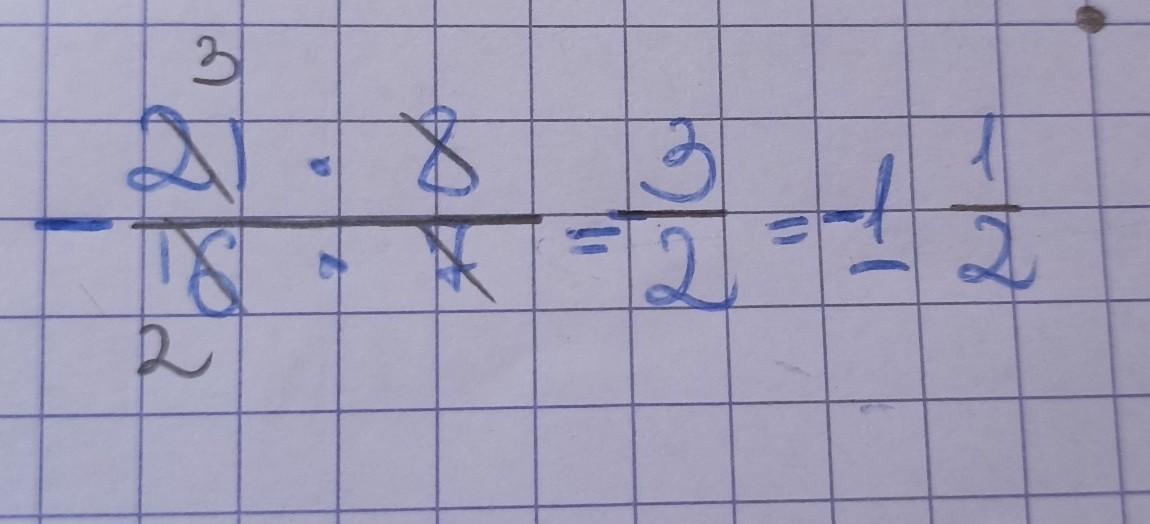 3
- 21 · 8 / 16 · 7 = - 3/2 = -1 1/2
2